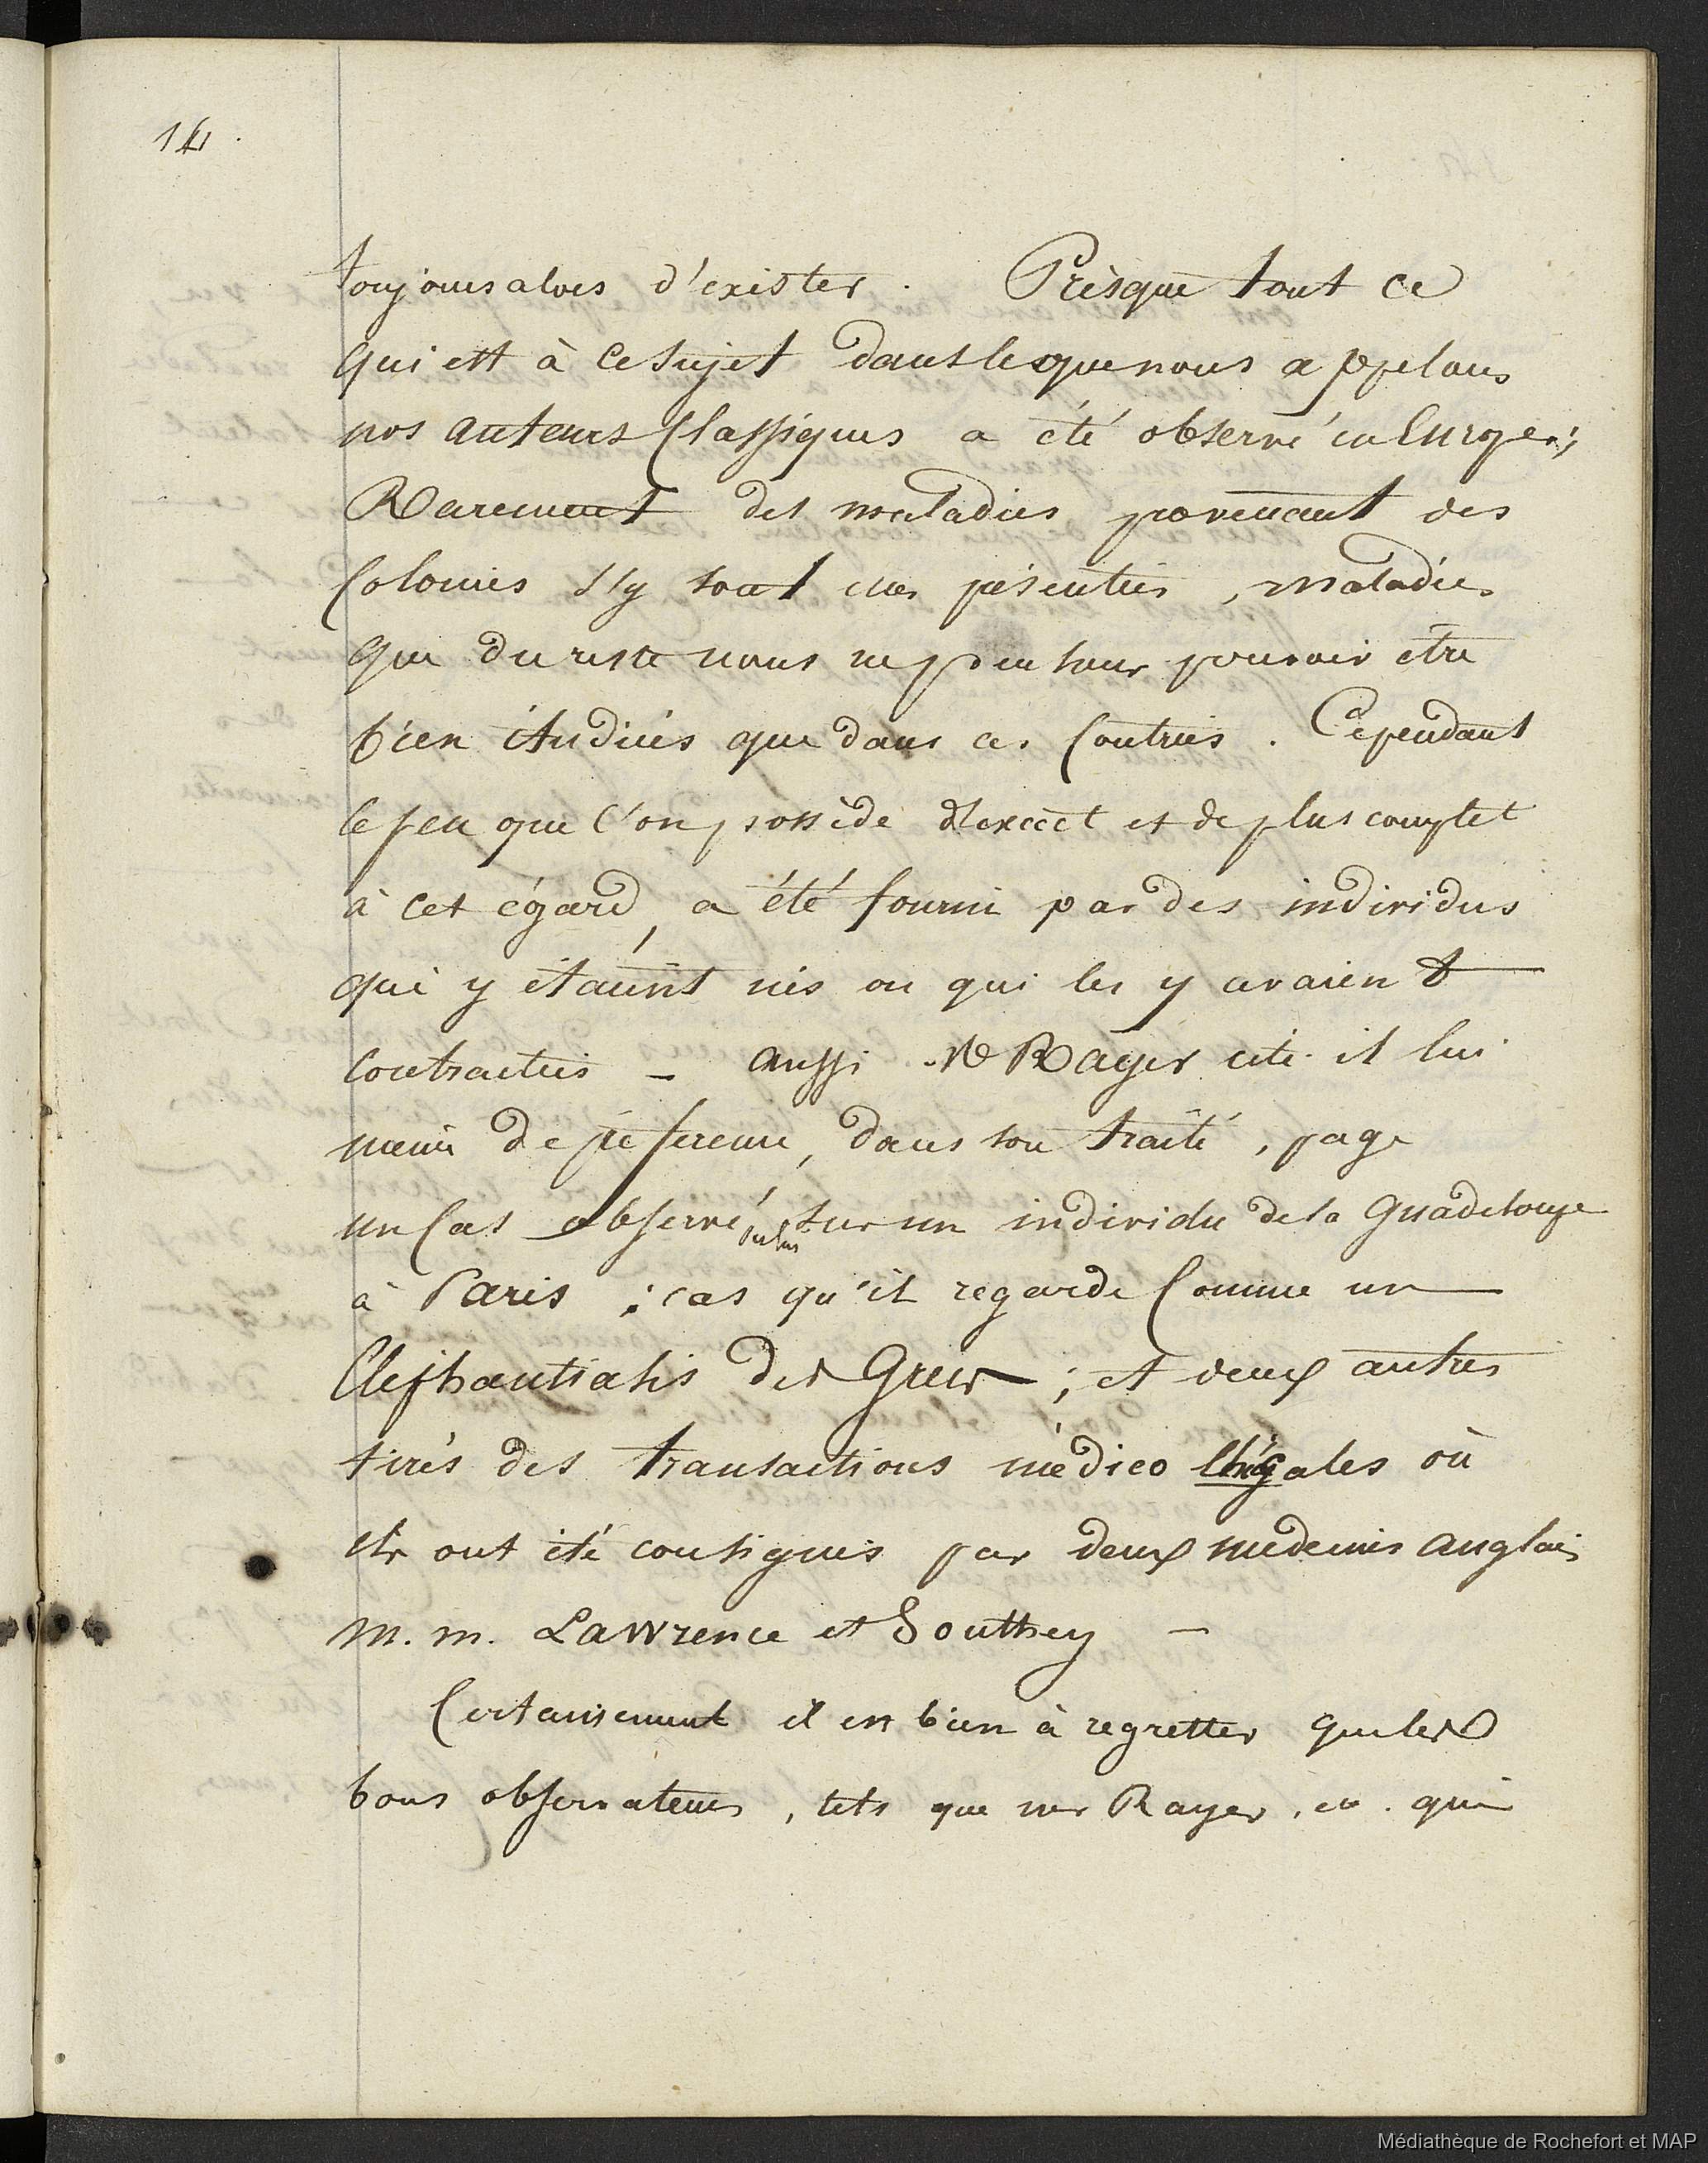 14.
toujours alors d'exister. Prèsque tout ce
qui est à ce sujet dans les que nous appelons
nos auteurs classiques a été observé en Europe;
Rarement des maladies provenant des
Colonies s'y sont présentées, maladies
que du reste nous ne pensons pouvoir être
bien étudiées que dans ces Contrées. Cependant
le peu que l'on possède d'exact et de plus complet
à cet égard, a été fourni par des individus
qui y étaient nés ou qui les y avaient
contractées – aussi Mr Rayer cite-il lui
même de préférence, dans son traité, page
un Cas observé sur un individu de la Guadeloupe
à Paris ; cas qu'il regarde Comme un
Elephantiasis des Grecs ; et deux autres
tirés des transactions médico légales où
ils ont été consignés par deux médecins anglais
m. m. Lawrence et Southey –
Certainement il est bien à regretter que les
bons observateurs, tels que mr Rayer, qui
Médiathèque de Rochefort et MAP